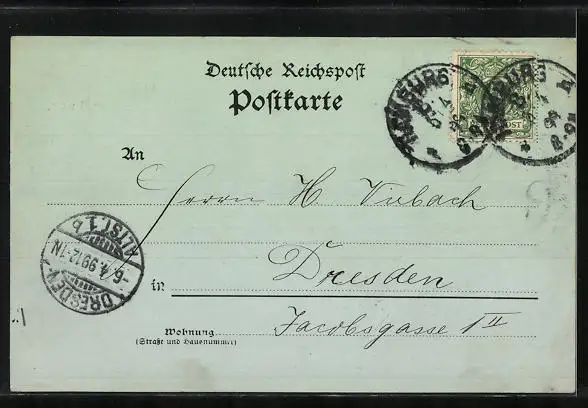 Deutsche Reichspost
Postkarte
HAMBURG
HAMBURG
An
Herrn H.
DRESDEN
-6.4.99.12-1N.
in Dresden
Wohnung
(Straße und Hausnummer)
Jacobsgasse 1 II